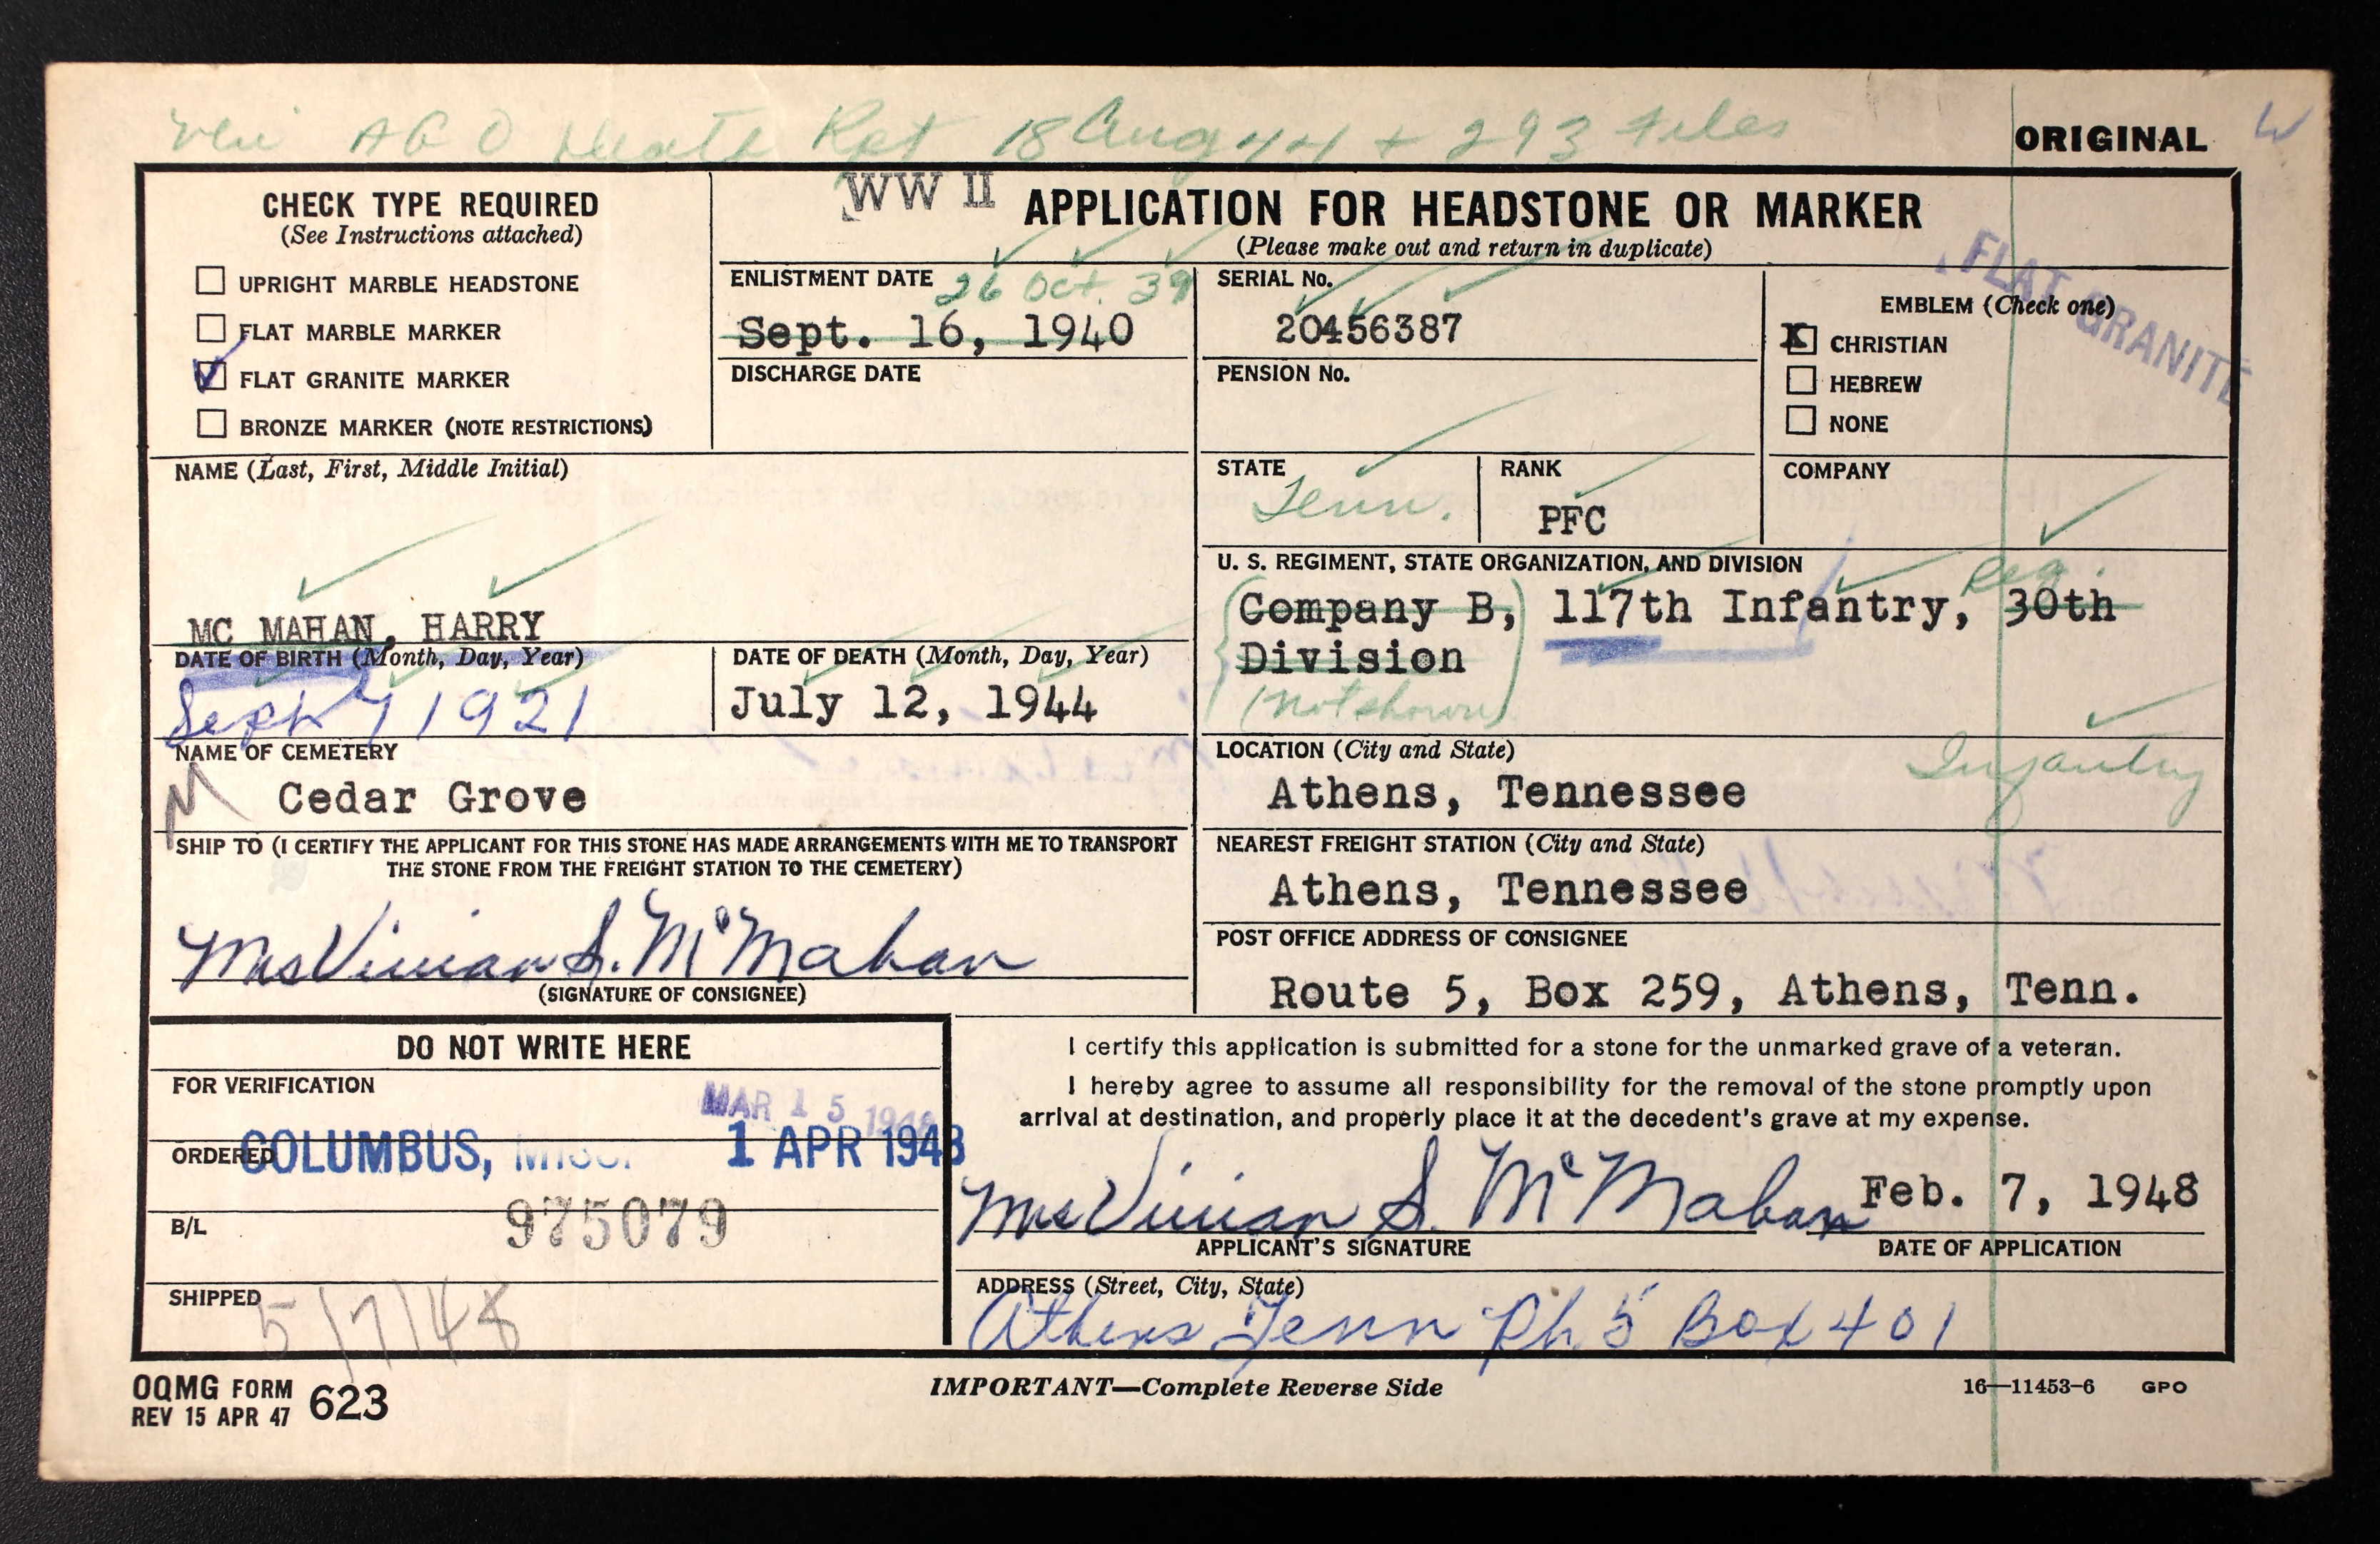 Veri AGO Death Rpt 18 Aug 44 + 293 Files
ORIGINAL W
CHECK TYPE REQUIRED
(See Instructions attached)
UPRIGHT MARBLE HEADSTONE
FLAT MARBLE MARKER
FLAT GRANITE MARKER
BRONZE MARKER (NOTE RESTRICTIONS)
WW II
APPLICATION FOR HEADSTONE OR MARKER
(Please make out and return in duplicate)
FLAT GRANITE
ENLISTMENT DATE 26 Oct. 39
Sept. 16, 1940
DISCHARGE DATE
SERIAL No.
20456387
PENSION No.
EMBLEM (Check one)
X CHRISTIAN
HEBREW
NONE
NAME (Last, First, Middle Initial)
MC MAHAN, HARRY
STATE
Tenn.
RANK
PFC
COMPANY
U. S. REGIMENT, STATE ORGANIZATION, AND DIVISION
Reg.
Company B, 117th Infantry, 30th
Division
(not shown)
DATE OF BIRTH (Month, Day, Year)
Sept 7 1921
DATE OF DEATH (Month, Day, Year)
July 12, 1944
NAME OF CEMETERY
Cedar Grove
LOCATION (City and State)
Infantry
Athens, Tennessee
SHIP TO (I CERTIFY THE APPLICANT FOR THIS STONE HAS MADE ARRANGEMENTS WITH ME TO TRANSPORT
THE STONE FROM THE FREIGHT STATION TO THE CEMETERY)
Mrs Vivian S. McMahan
(SIGNATURE OF CONSIGNEE)
NEAREST FREIGHT STATION (City and State)
Athens, Tennessee
POST OFFICE ADDRESS OF CONSIGNEE
Route 5, Box 259, Athens, Tenn.
DO NOT WRITE HERE
FOR VERIFICATION
MAR 15 1948
ORDERED
COLUMBUS, MISS. 1 APR 1948
B/L
975079
SHIPPED
5/7/48
I certify this application is submitted for a stone for the unmarked grave of a veteran.
I hereby agree to assume all responsibility for the removal of the stone promptly upon
arrival at destination, and properly place it at the decedent's grave at my expense.
Mrs Vivian S. McMahan Feb. 7, 1948
APPLICANT'S SIGNATURE DATE OF APPLICATION
ADDRESS (Street, City, State)
Athens Tenn Rt. 5 Box 401
OQMG FORM 623
REV 15 APR 47
IMPORTANT—Complete Reverse Side
16—11453-6 GPO